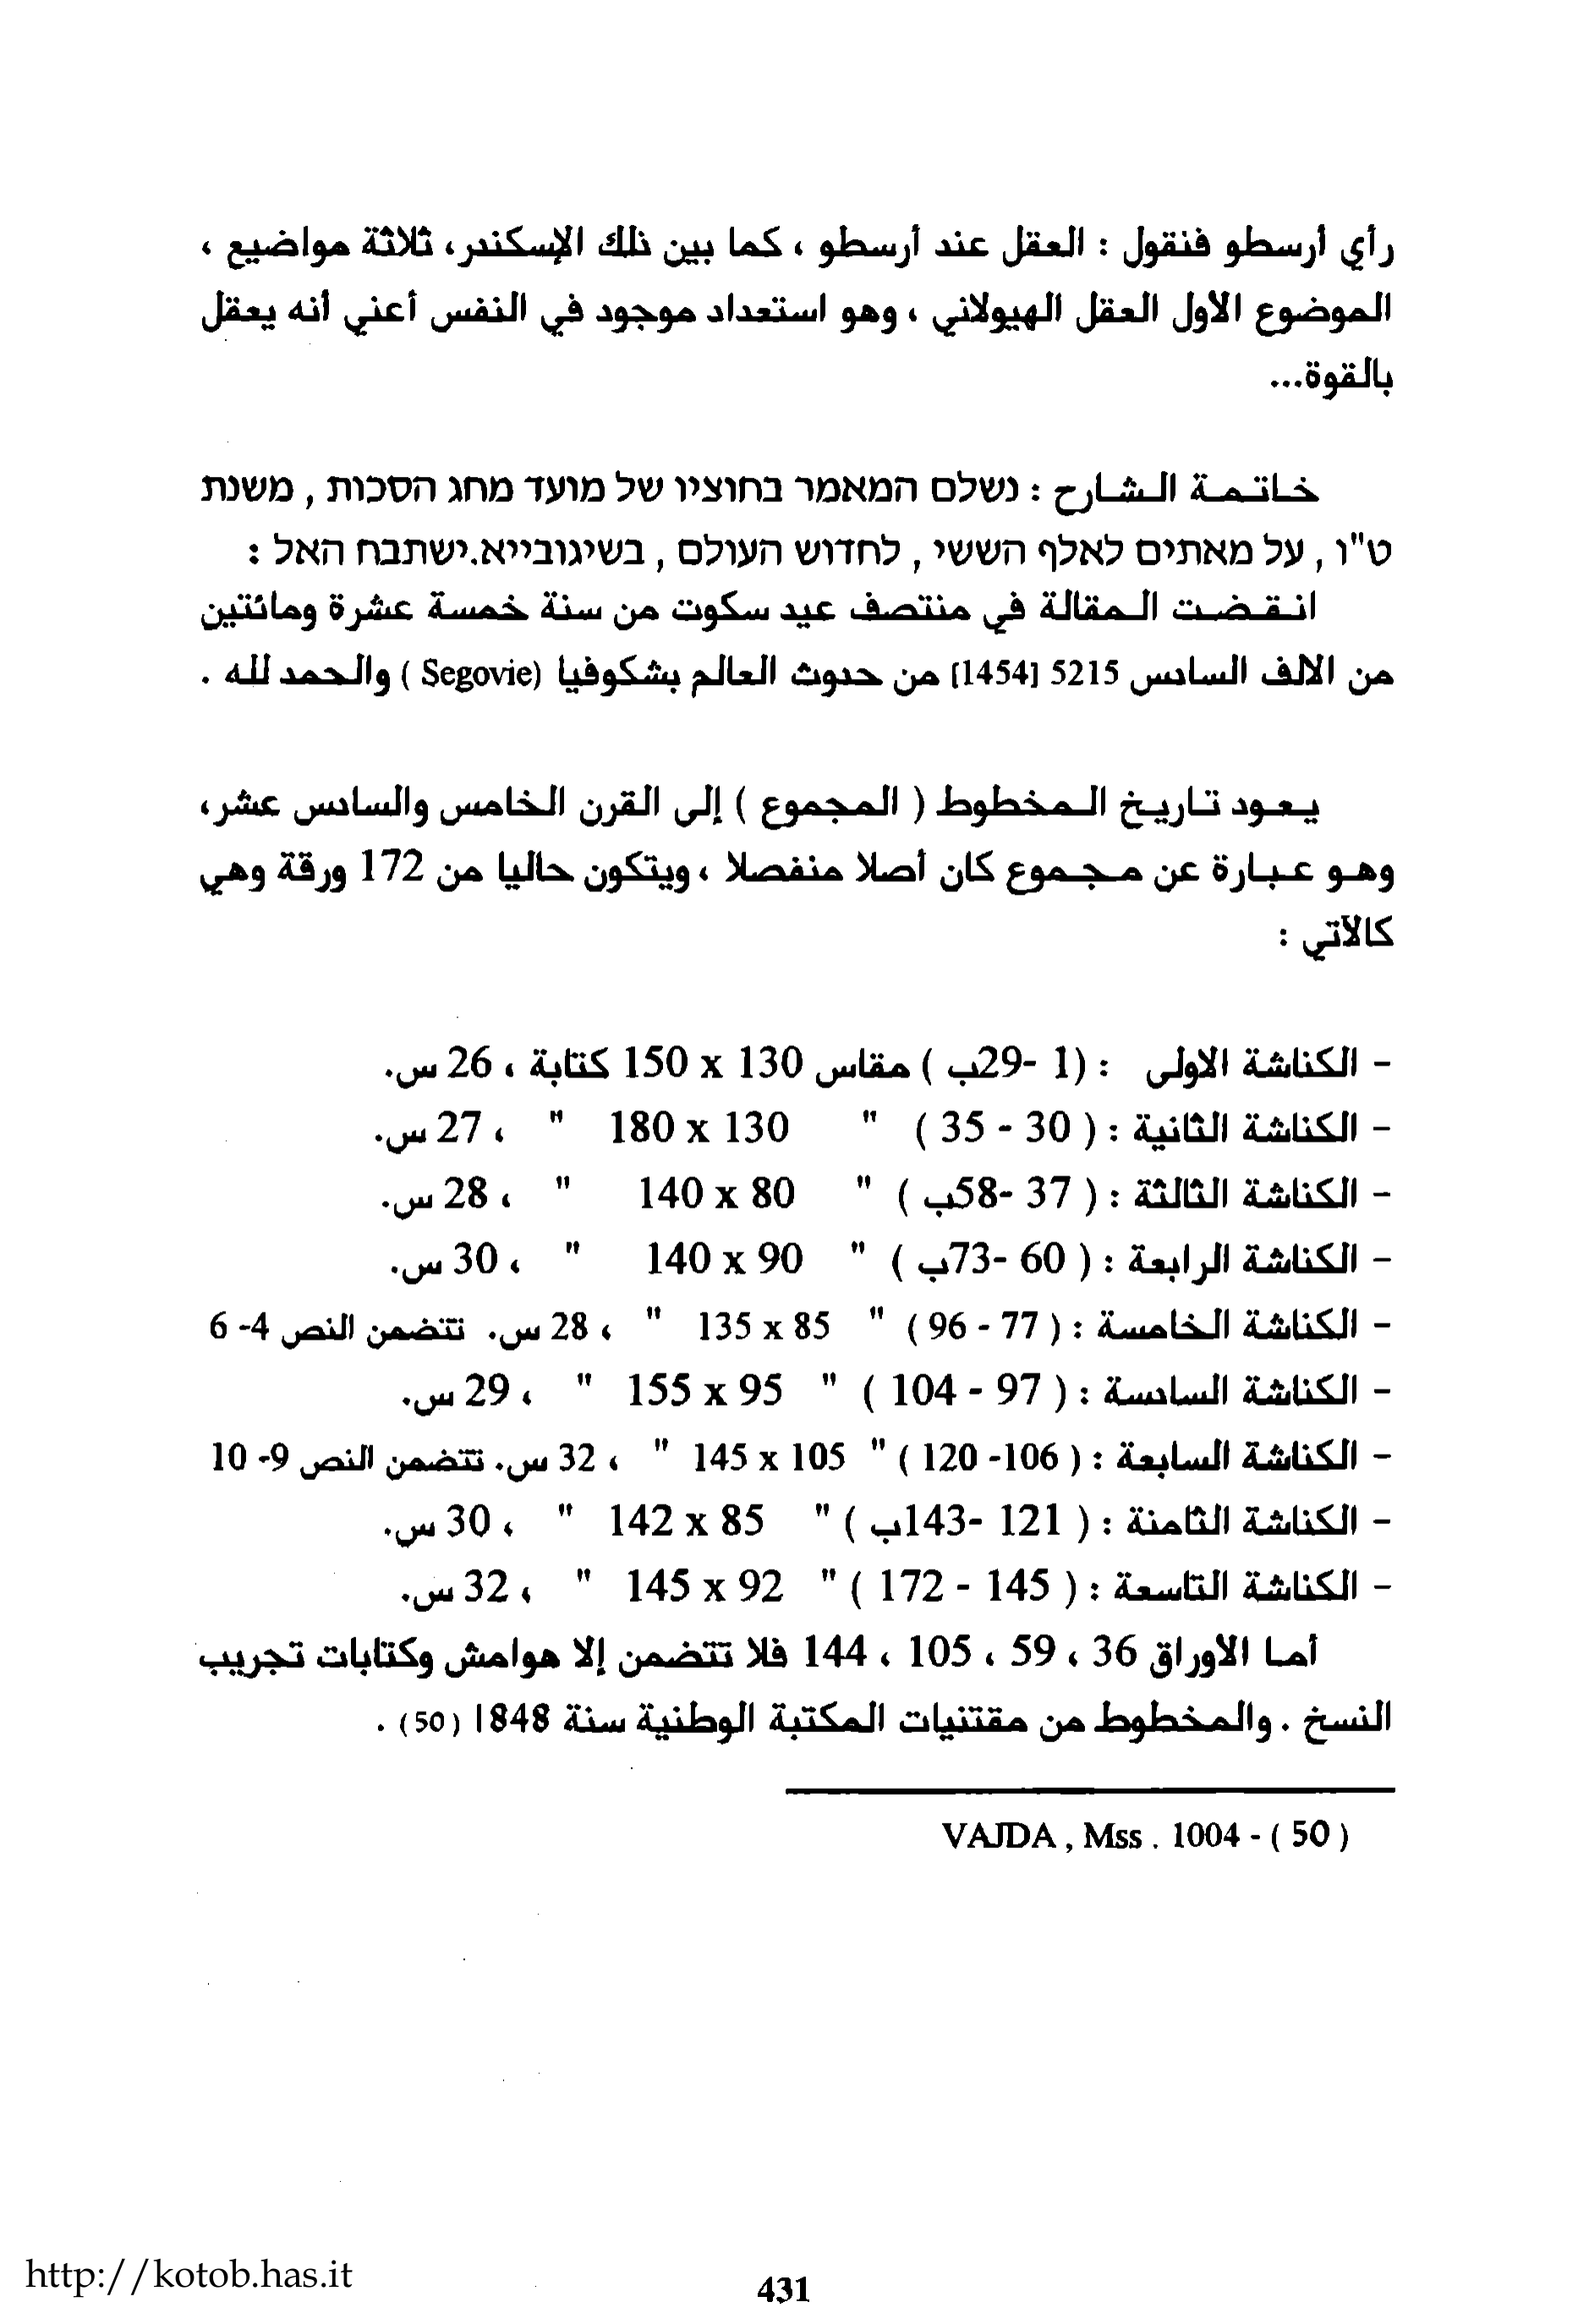 رأي أرسطو فنقول : العقل عند أرسطو ، كما بين ذلك الإسكندر، ثلاثة مواضيع ،
الموضوع الاول العقل الهيولاني ، وهو استعداد موجود في النفس أعني أنه يعقل
بالقوة...
خاتمة الشارح : נשלם המאמר בחוציו של מועד מחג הסכות , משנת
ט"ו , על מאתים לאלף הששי , לחדוש העולם , בשיגובייא.ישתבח האל :
انقضت المقالة في منتصف عيد سكوت من سنة خمسة عشرة ومائتين
من الالف السادس 5215 [1454] من حدوث العالم بشكوفيا (Segovie ) والحمد لله .
يعود تاريخ المخطوط ( المجموع ) إلى القرن الخامس والسادس عشر،
وهو عبارة عن مجموع كان أصلا منفصلا ، ويتكون حاليا من 172 ورقة وهي
كالآتي :
- الكناشة الاولى : (1 -29ب ) مقاس 130 x 150 كتابة ، 26 س.
- الكناشة الثانية : ( 30 - 35 ) " 130 x 180 " ، 27 س.
- الكناشة الثالثة : ( 37 -58ب ) " 80 x 140 " ، 28 س.
- الكناشة الرابعة : ( 60 -73ب ) " 90 x 140 " ، 30 س.
- الكناشة الخامسة : ( 77 - 96 ) " 85 x 135 " ، 28 س. تتضمن النص 4- 6
- الكناشة السادسة : ( 97 - 104 ) " 95 x 155 " ، 29 س.
- الكناشة السابعة : ( 106- 120 ) " 105 x 145 " ، 32 س. تتضمن النص 9- 10
- الكناشة الثامنة : ( 121 -143ب ) " 85 x 142 " ، 30 س.
- الكناشة التاسعة : ( 145 - 172 ) " 92 x 145 " ، 32 س.
أما الاوراق 36 ، 59 ، 105 ، 144 فلا تتضمن إلا هوامش وكتابات تجريب
النسخ . والمخطوط من مقتنيات المكتبة الوطنية سنة 1848 (50) .
( 50 ) - VAJDA , Mss . 1004
http://kotob.has.it
431